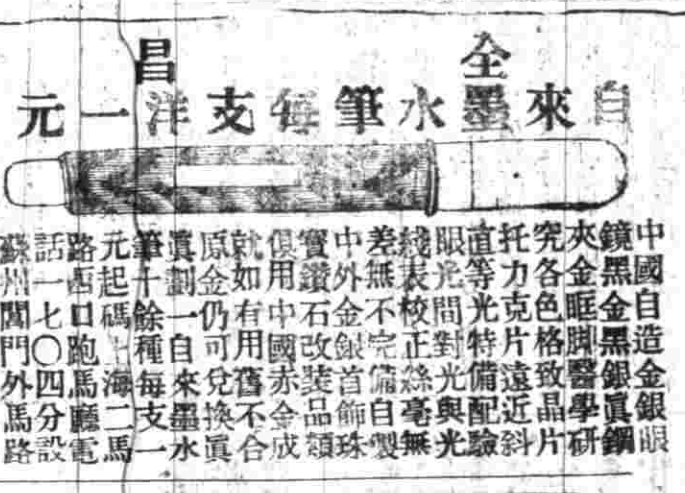 全昌
自來墨水筆每支洋一元
中國自造金銀眼
鏡黑金黑銀眞鋼
夾金眶脚醫學研
究各色格致晶片
托力克片遠近斜
直等光特備配驗
眼光間對光與光
綫表校正絲毫無
差無不完備自製
中外金銀首飾珠
寶鑽石改裝品類
俱用中國赤金成
就如有用舊不合
原金仍可兌換眞
眞劃一自來墨水
筆十餘種每支一
元起碼上海二馬
路西口跑馬廳電
話一七〇四分設
蘇州閶門外馬路